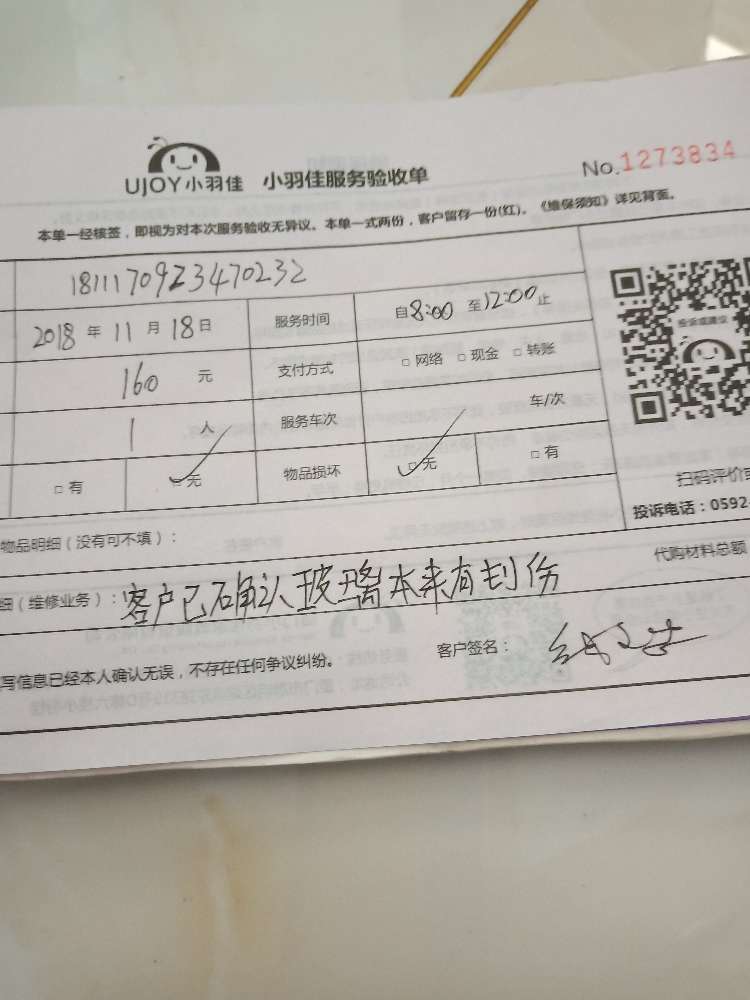 UJOY小羽佳 小羽佳服务验收单 No.1273834
本单一经核签，即视为对本次服务验收无异议。本单一式两份，客户留存一份(红)。《维保须知》详见背面。
181117092347​0232
2018 年 11 月 18 日 服务时间 自8:00 至12:00止
160 元 支付方式 □ 网络 □ 现金 □ 转账
1 人 服务车次 车/次
□ 有 □ 无 物品损坏 □ 无 □ 有
投诉或建议
扫码评价或
投诉电话：0592-
物品明细（没有可不填）：
代购材料总额
细（维修业务）：客户已确认玻璃本来有刮伤
写信息已经本人确认无误，不存在任何争议纠纷。 客户签名：